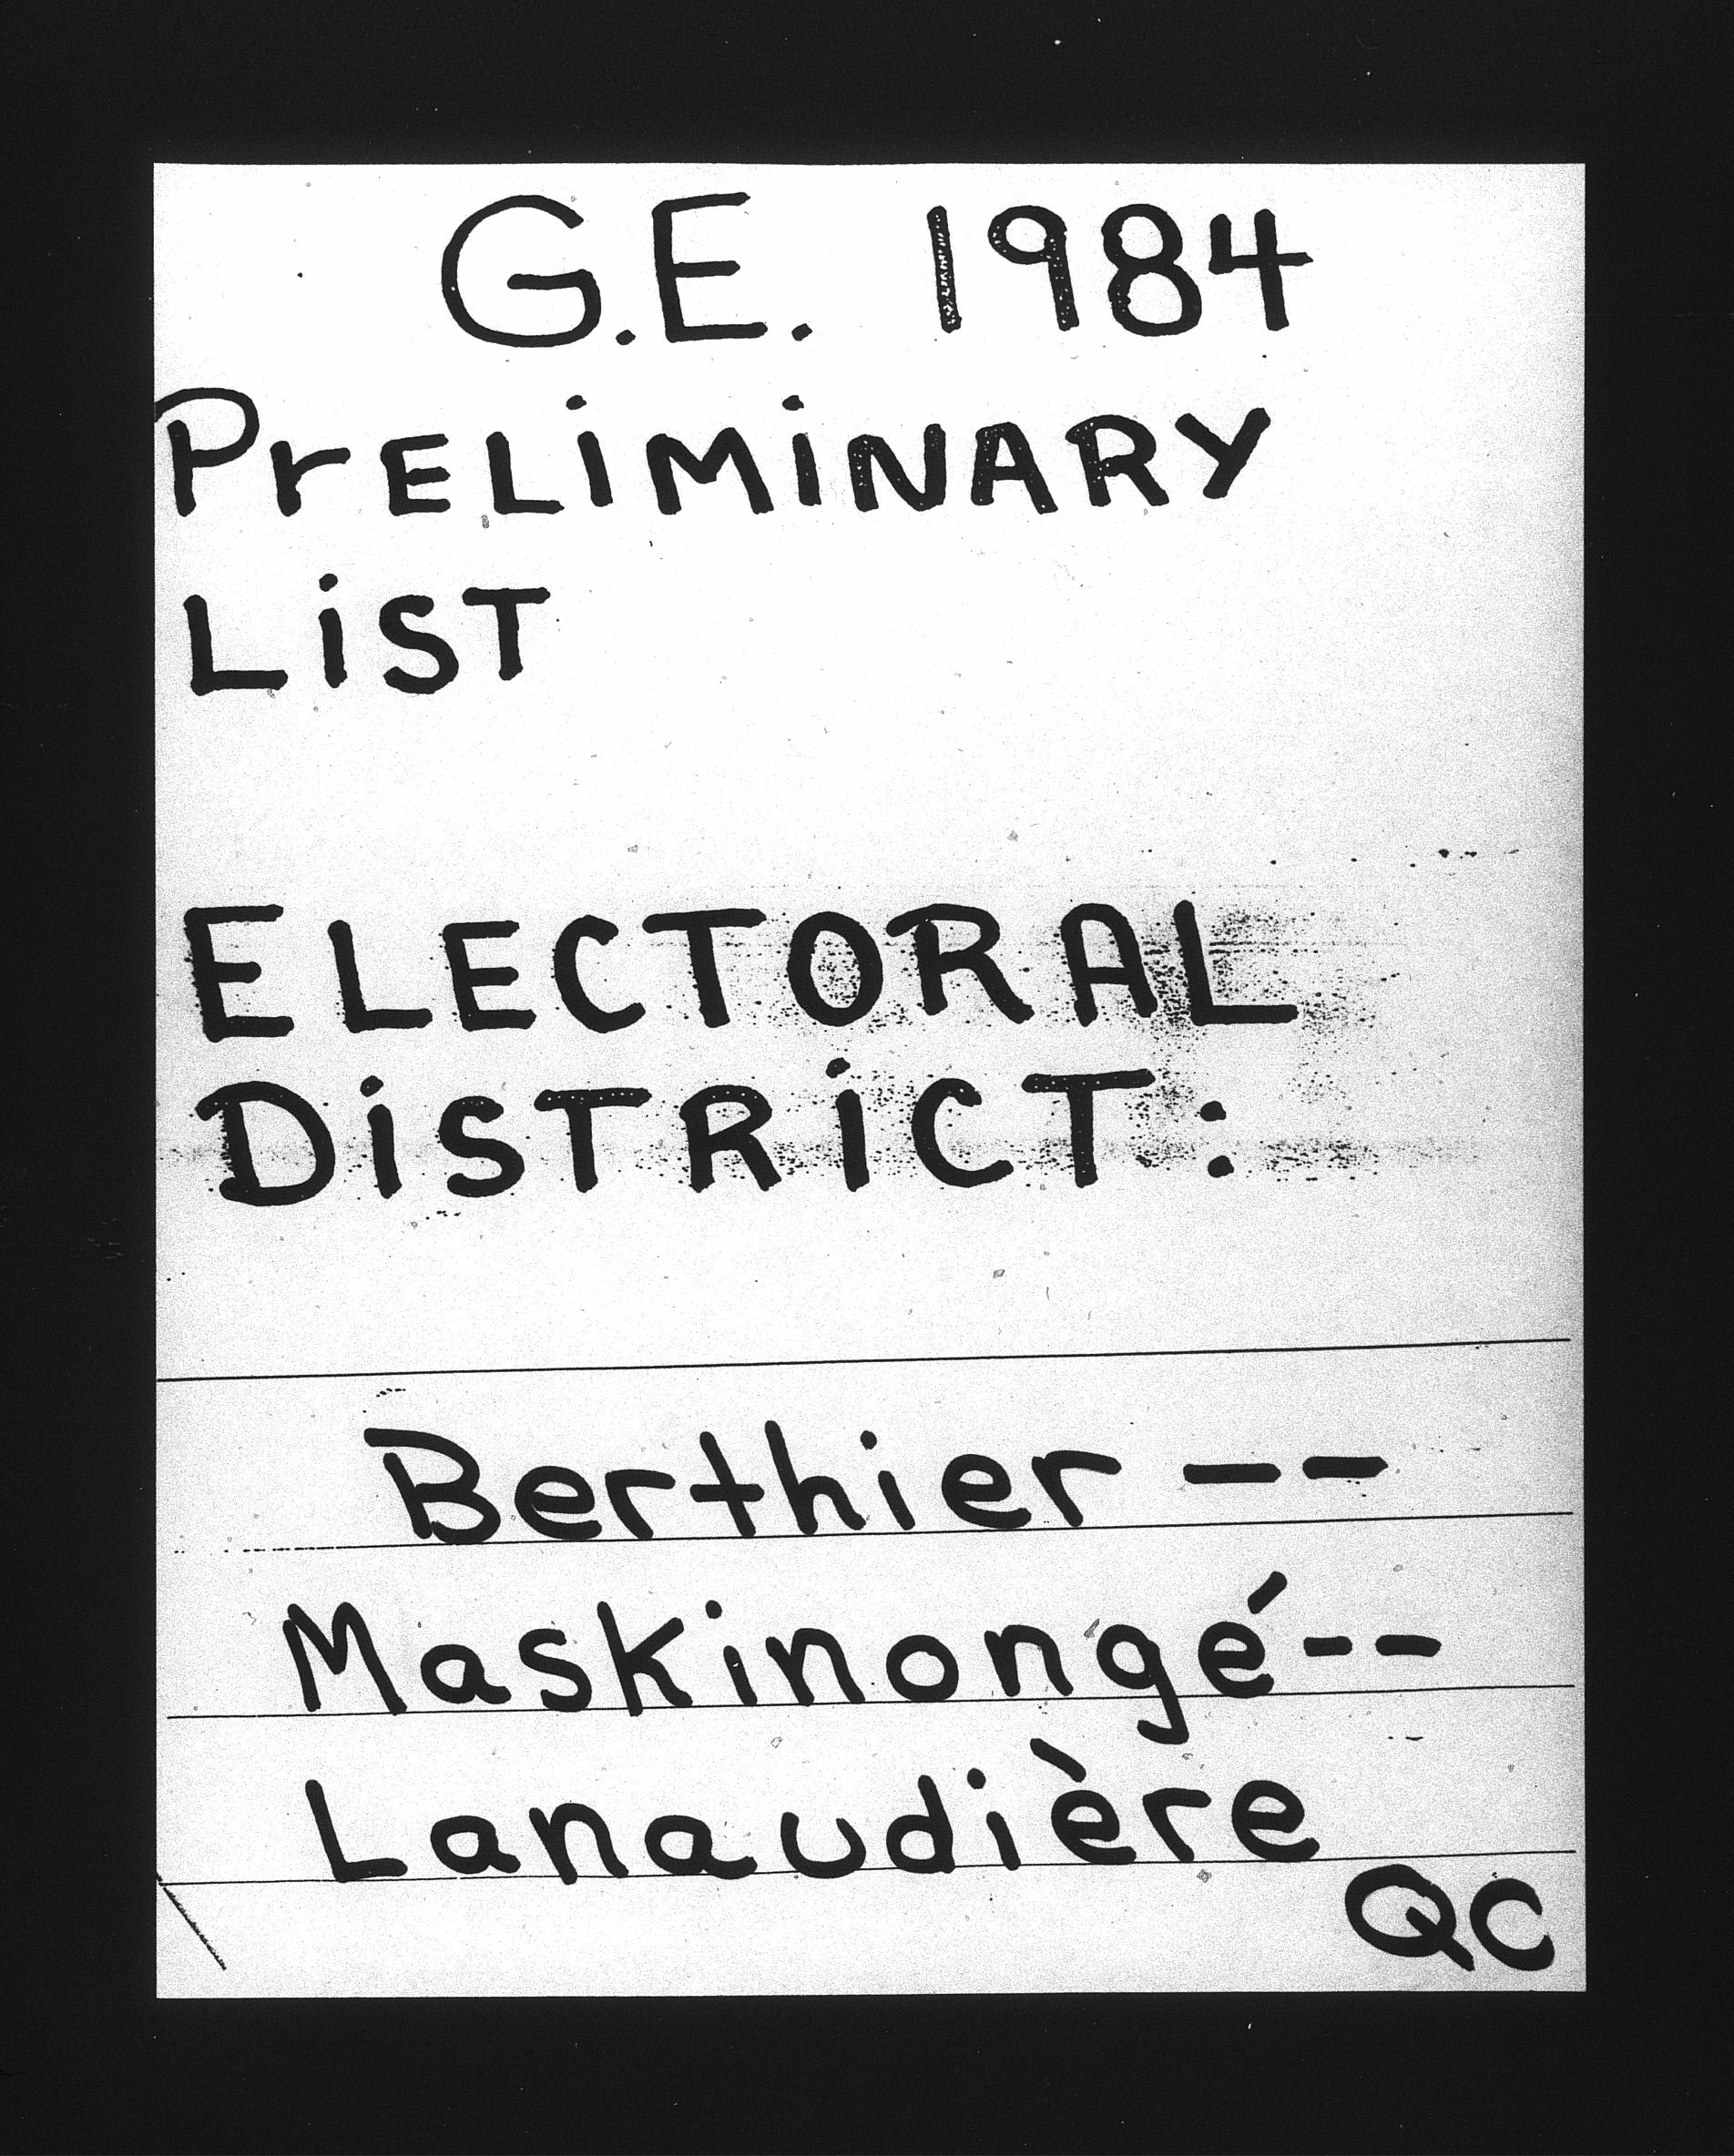 G.E. 1984
PrELiMiNARY
LiST
ELECTORAL
DiSTRiCT:
Berthier --
Maskinongé--
Lanaudière
QC